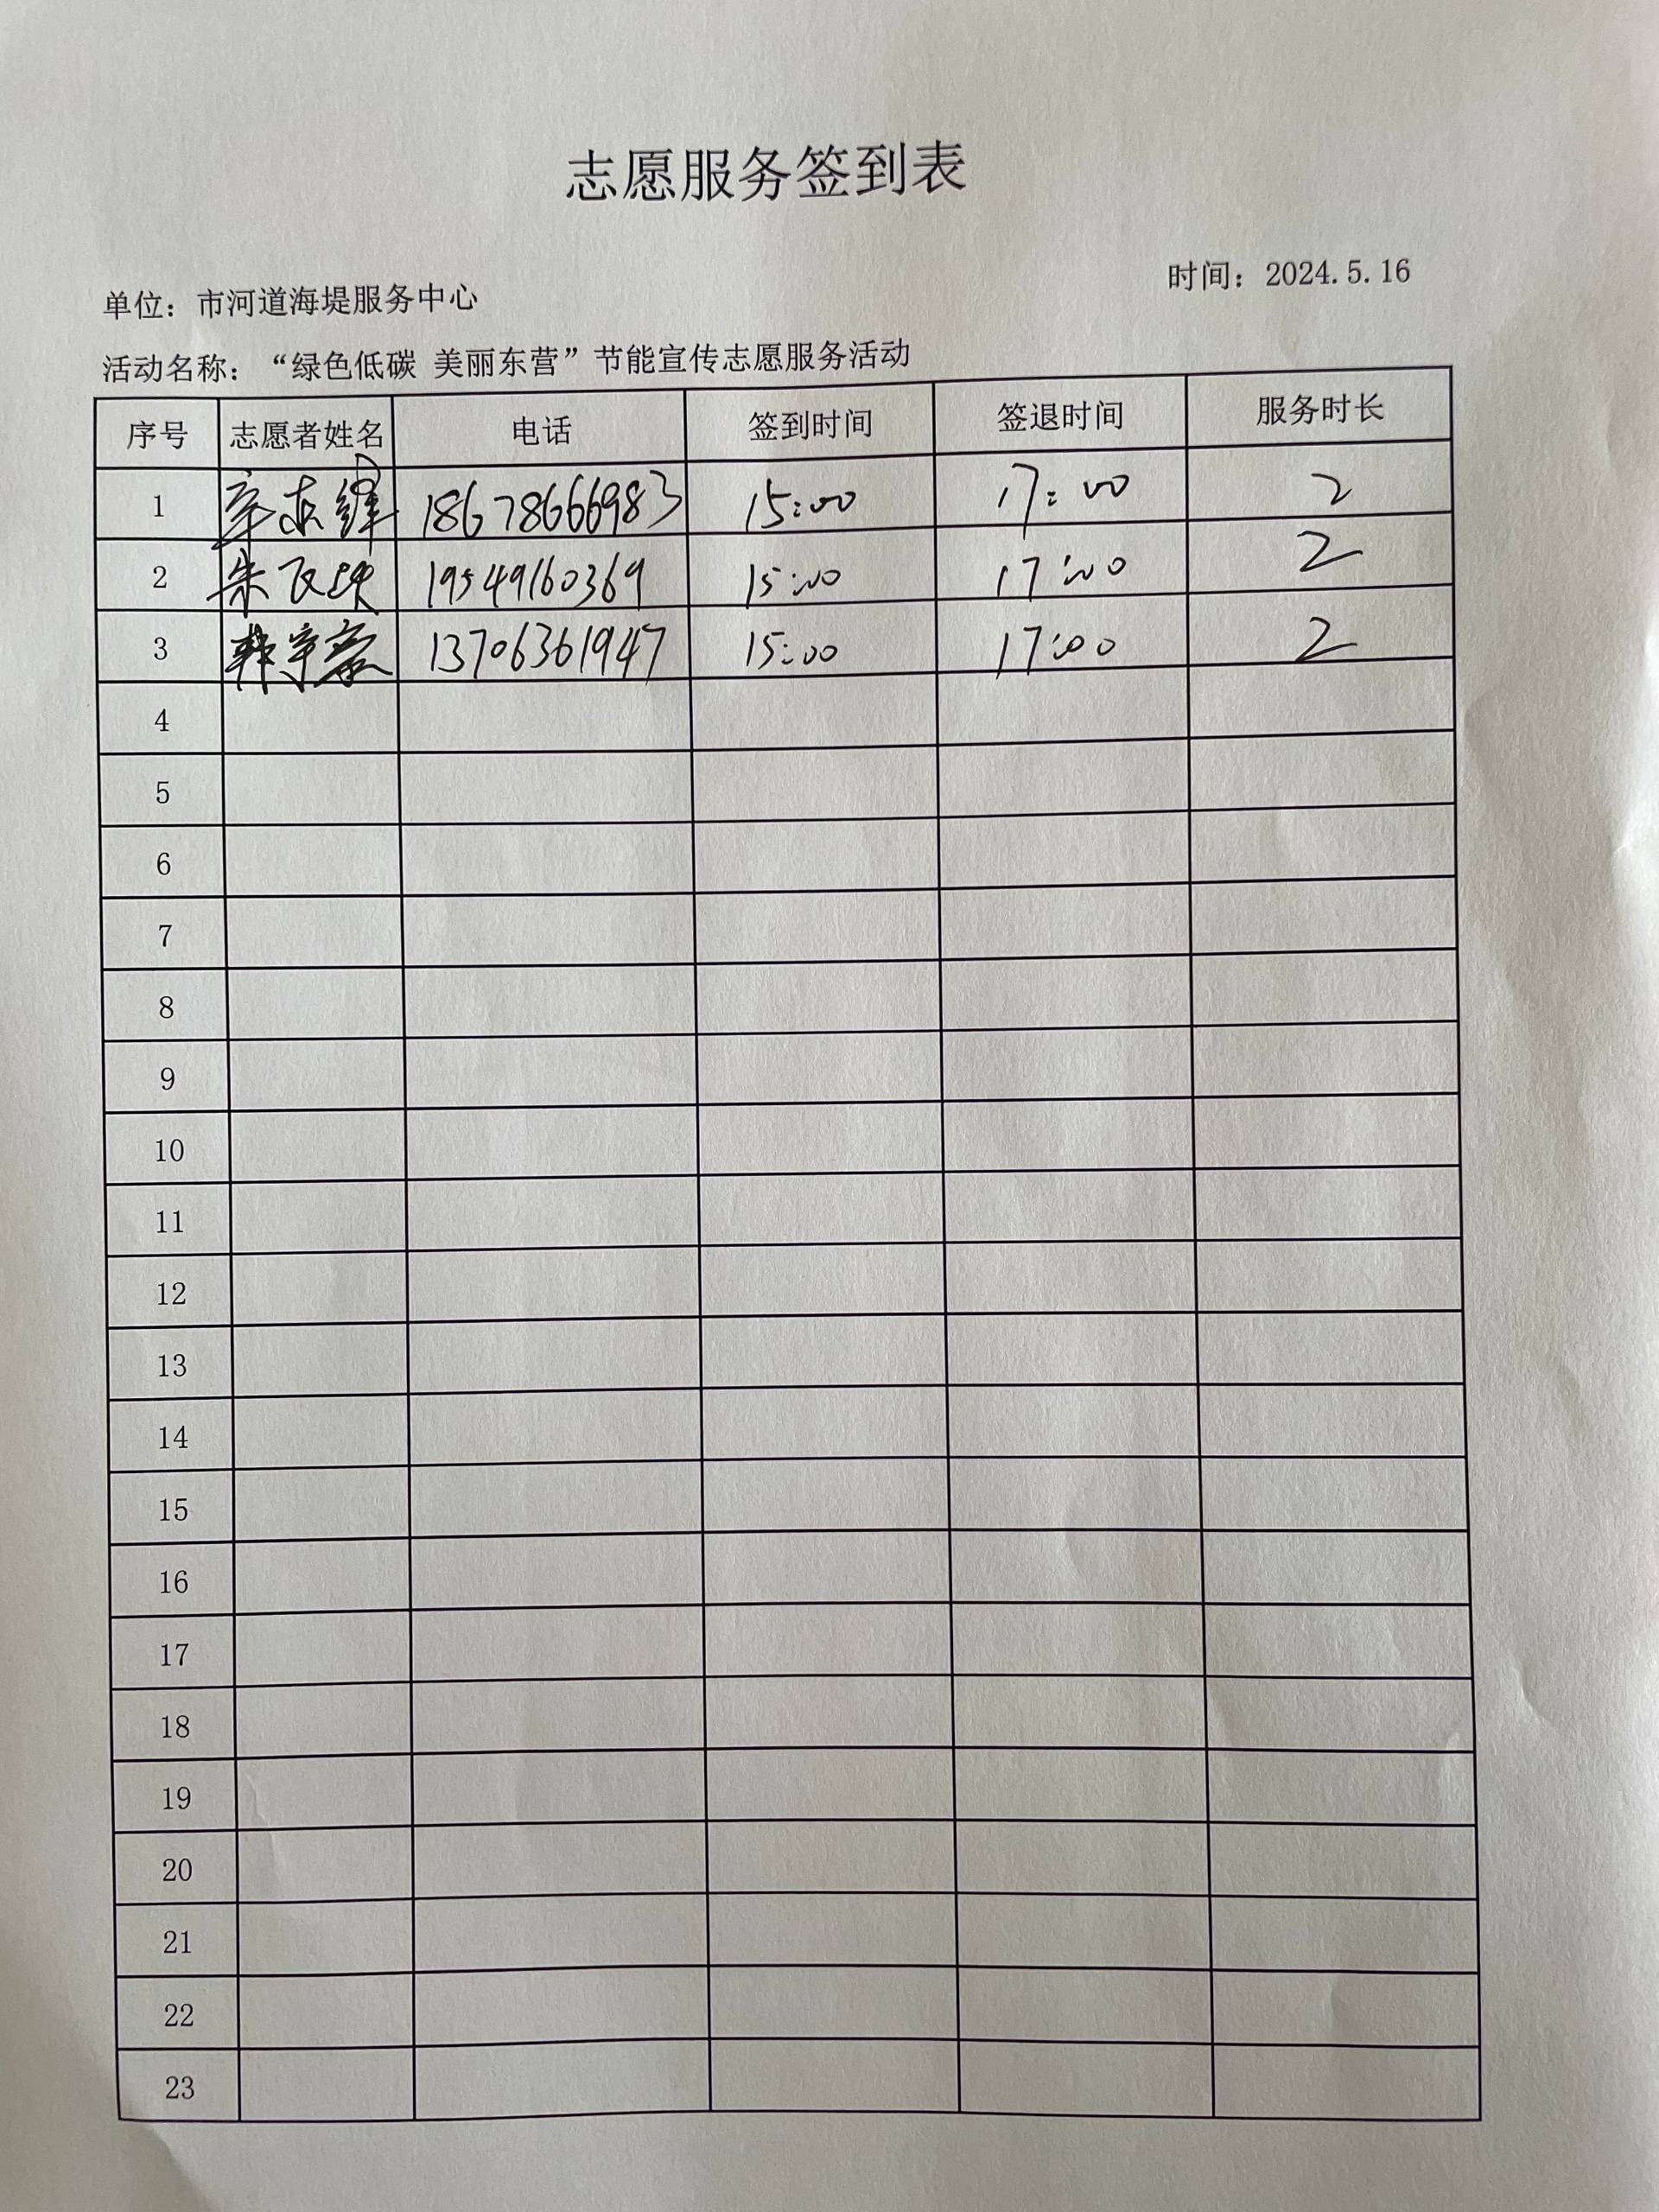 志愿服务签到表
时间：2024.5.16
单位：市河道海堤服务中心
活动名称：“绿色低碳 美丽东营”节能宣传志愿服务活动
序号 志愿者姓名 电话 签到时间 签退时间 服务时长
1 18678666983 15:00 17:00 2
2 朱 19549160369 15:00 17:00 2
3 韩 13706361947 15:00 17:00 2
4
5
6
7
8
9
10
11
12
13
14
15
16
17
18
19
20
21
22
23